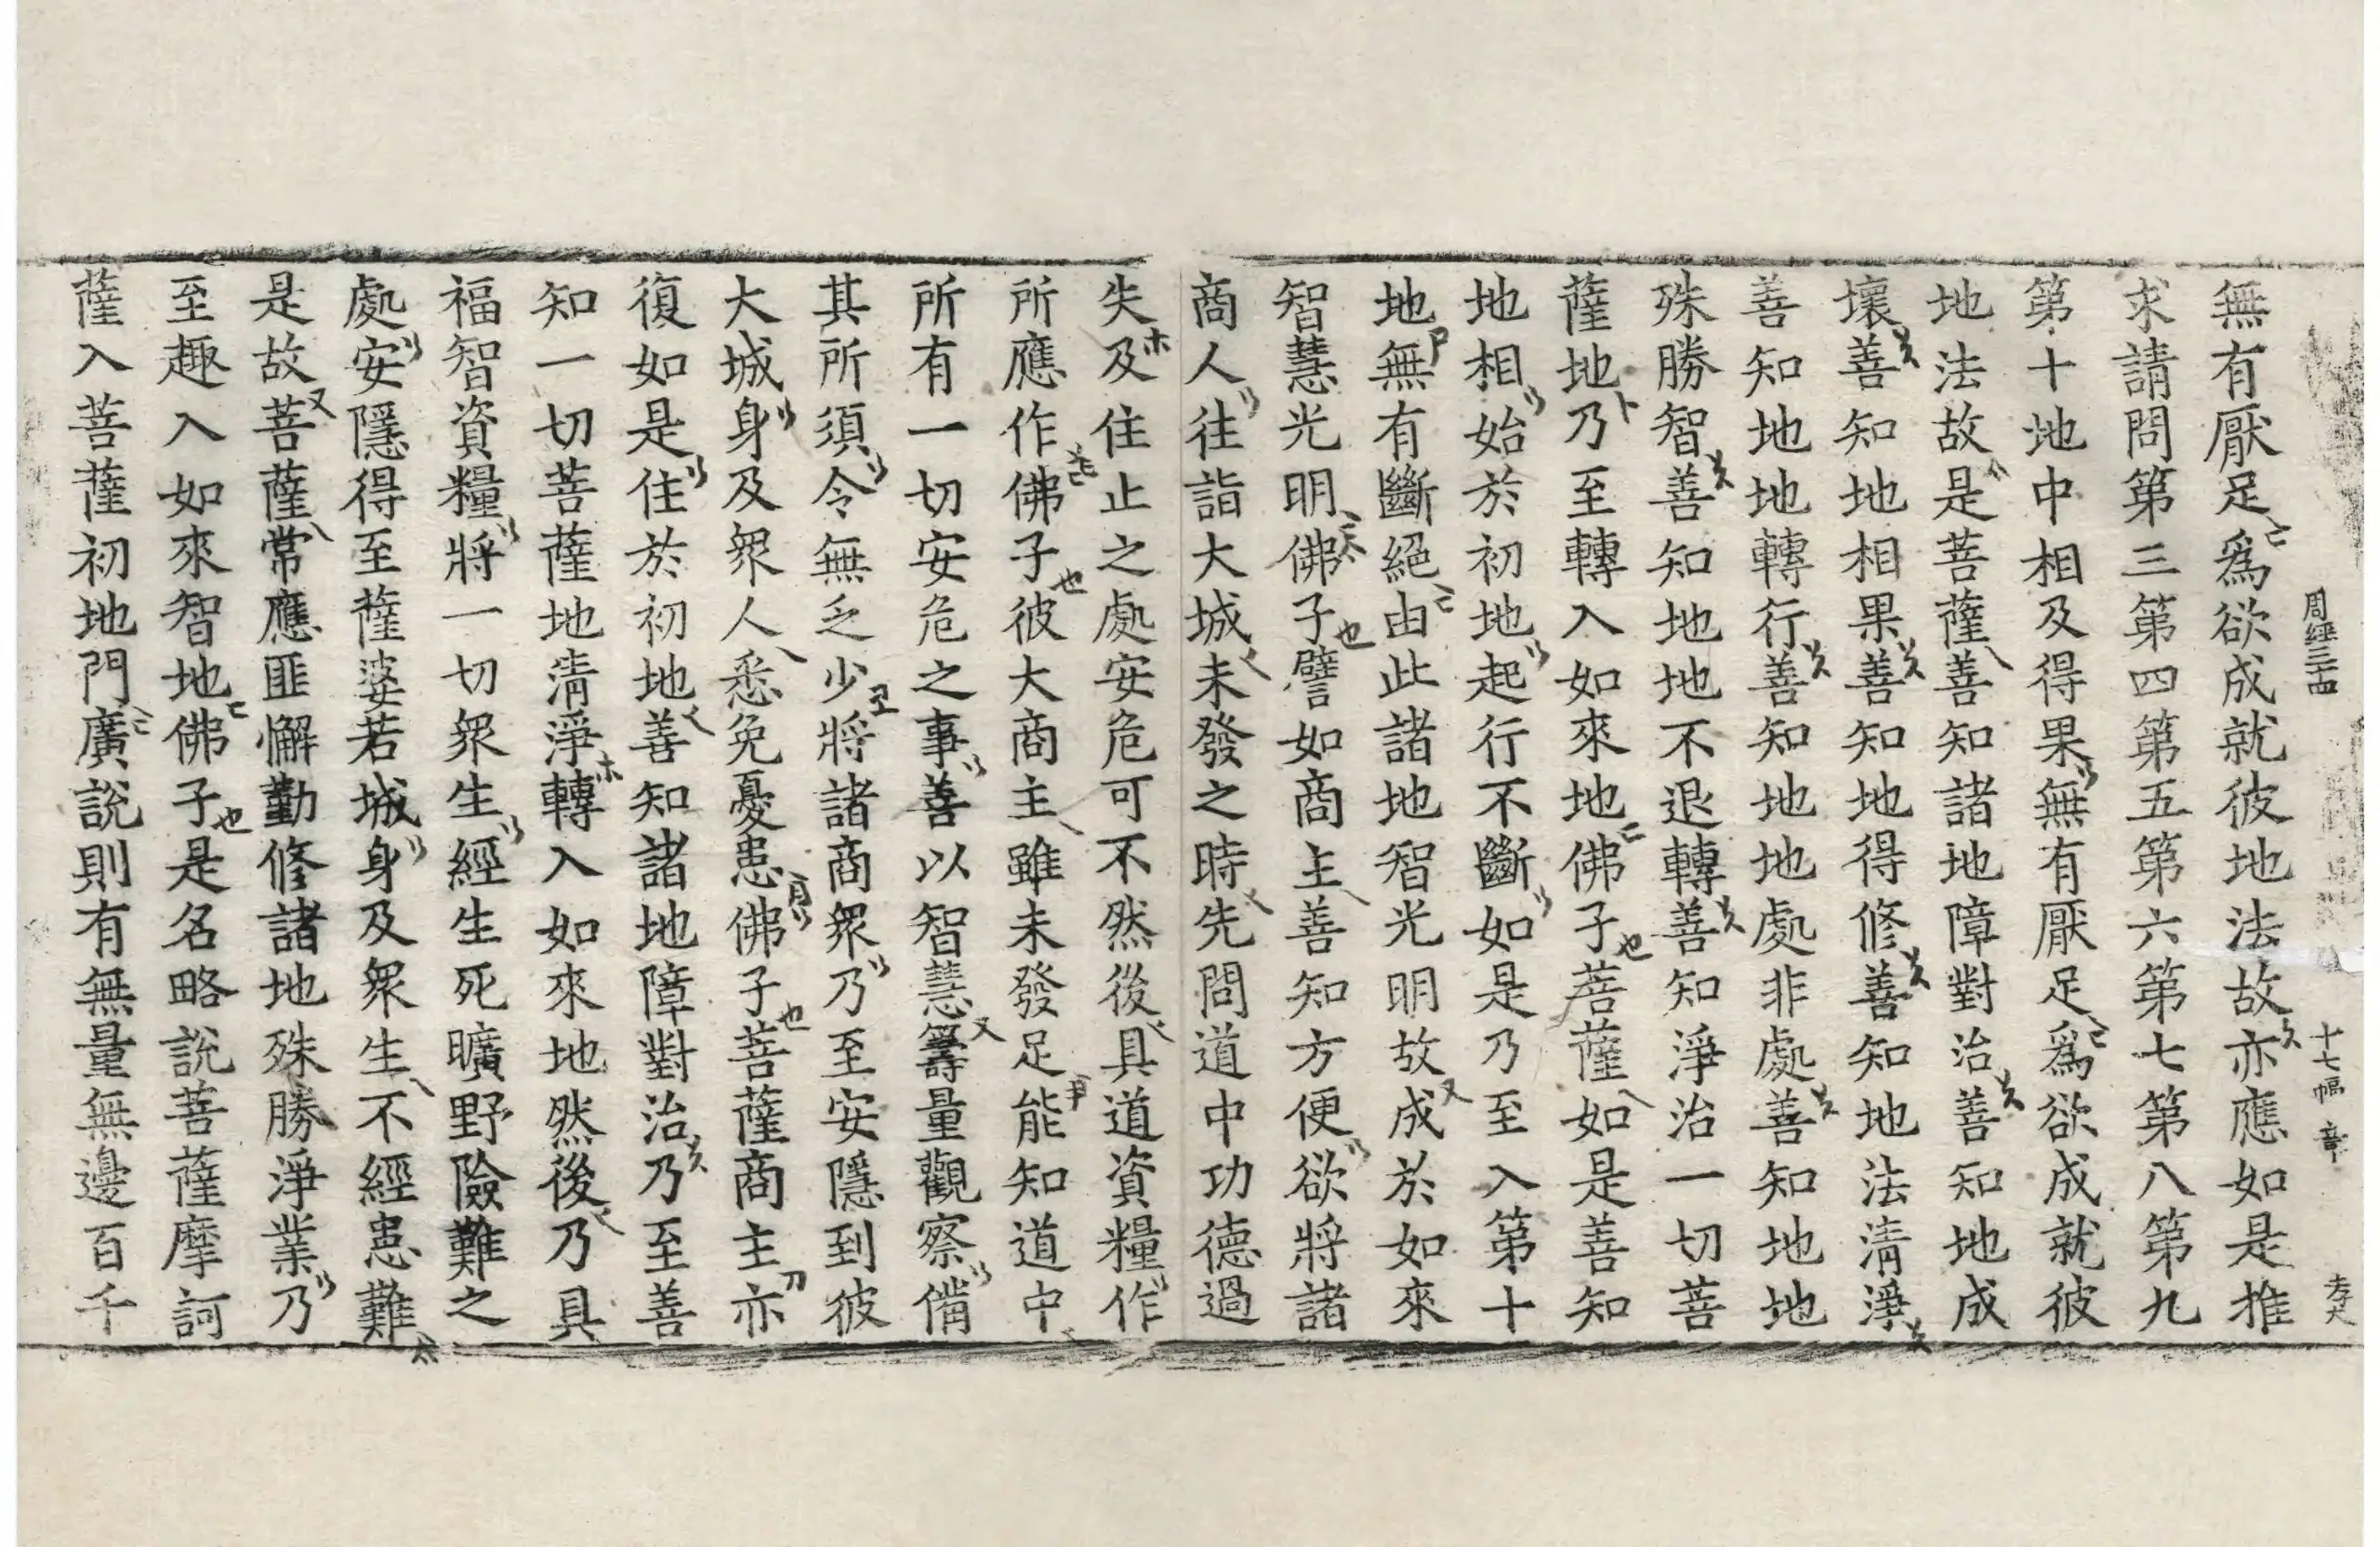 周經三十四 十七幅 章 孝大
無有厭足為欲成就彼地法故亦應如是推
求請問第三第四第五第六第七第八第九
第十地中相及得果無有厭足為欲成就彼
地法故是菩薩善知諸地障對治善知地成
壞善知地相果善知地得修善知地法清淨
善知地地轉行善知地地處非處善知地地
殊勝智善知地地不退轉善知淨治一切菩
薩地乃至轉入如來地佛子菩薩如是善知
地相始於初地起行不斷如是乃至入第十
地無有斷絕由此諸地智光明故成於如來
智慧光明佛子譬如商主善知方便欲將諸
商人往詣大城未發之時先問道中功德過
失及住止之處安危可不然後具道資糧作
所應作佛子彼大商主雖未發足能知道中
所有一切安危之事善以智慧籌量觀察備
其所須令無乏少將諸商眾乃至安隱到彼
大城身及眾人悉免憂患佛子菩薩商主亦
復如是住於初地善知諸地障對治乃至善
知一切菩薩地清淨轉入如來地然後乃具
福智資糧將一切眾生經生死曠野險難之
處安隱得至薩婆若城身及眾生不經患難
是故菩薩常應匪懈勤修諸地殊勝淨業乃
至趣入如來智地佛子是名略說菩薩摩訶
薩入菩薩初地門廣說則有無量無邊百千